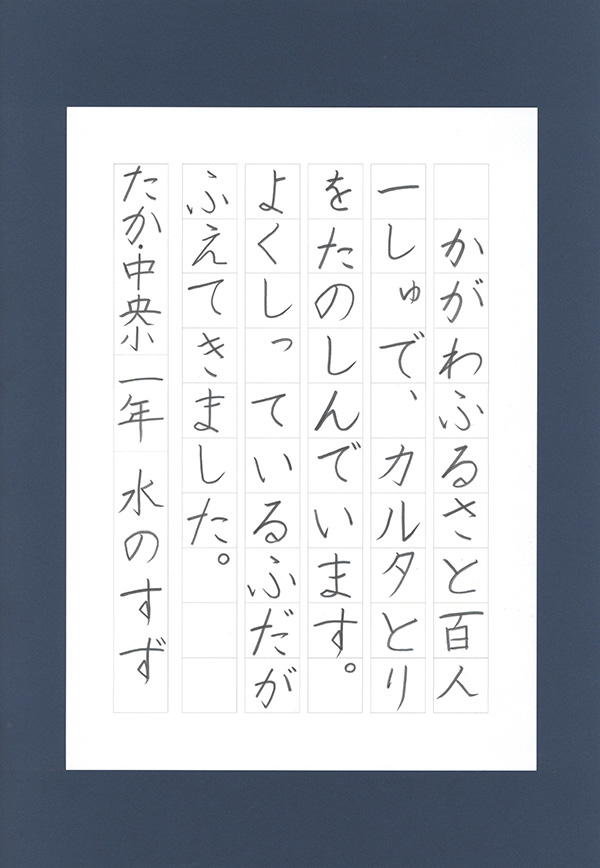 かがわふるさと百人
一しゅで、カルタとり
をたのしんでいます。
よくしっているふだが
ふえてきました。
たか・中央小 一年 水のすず